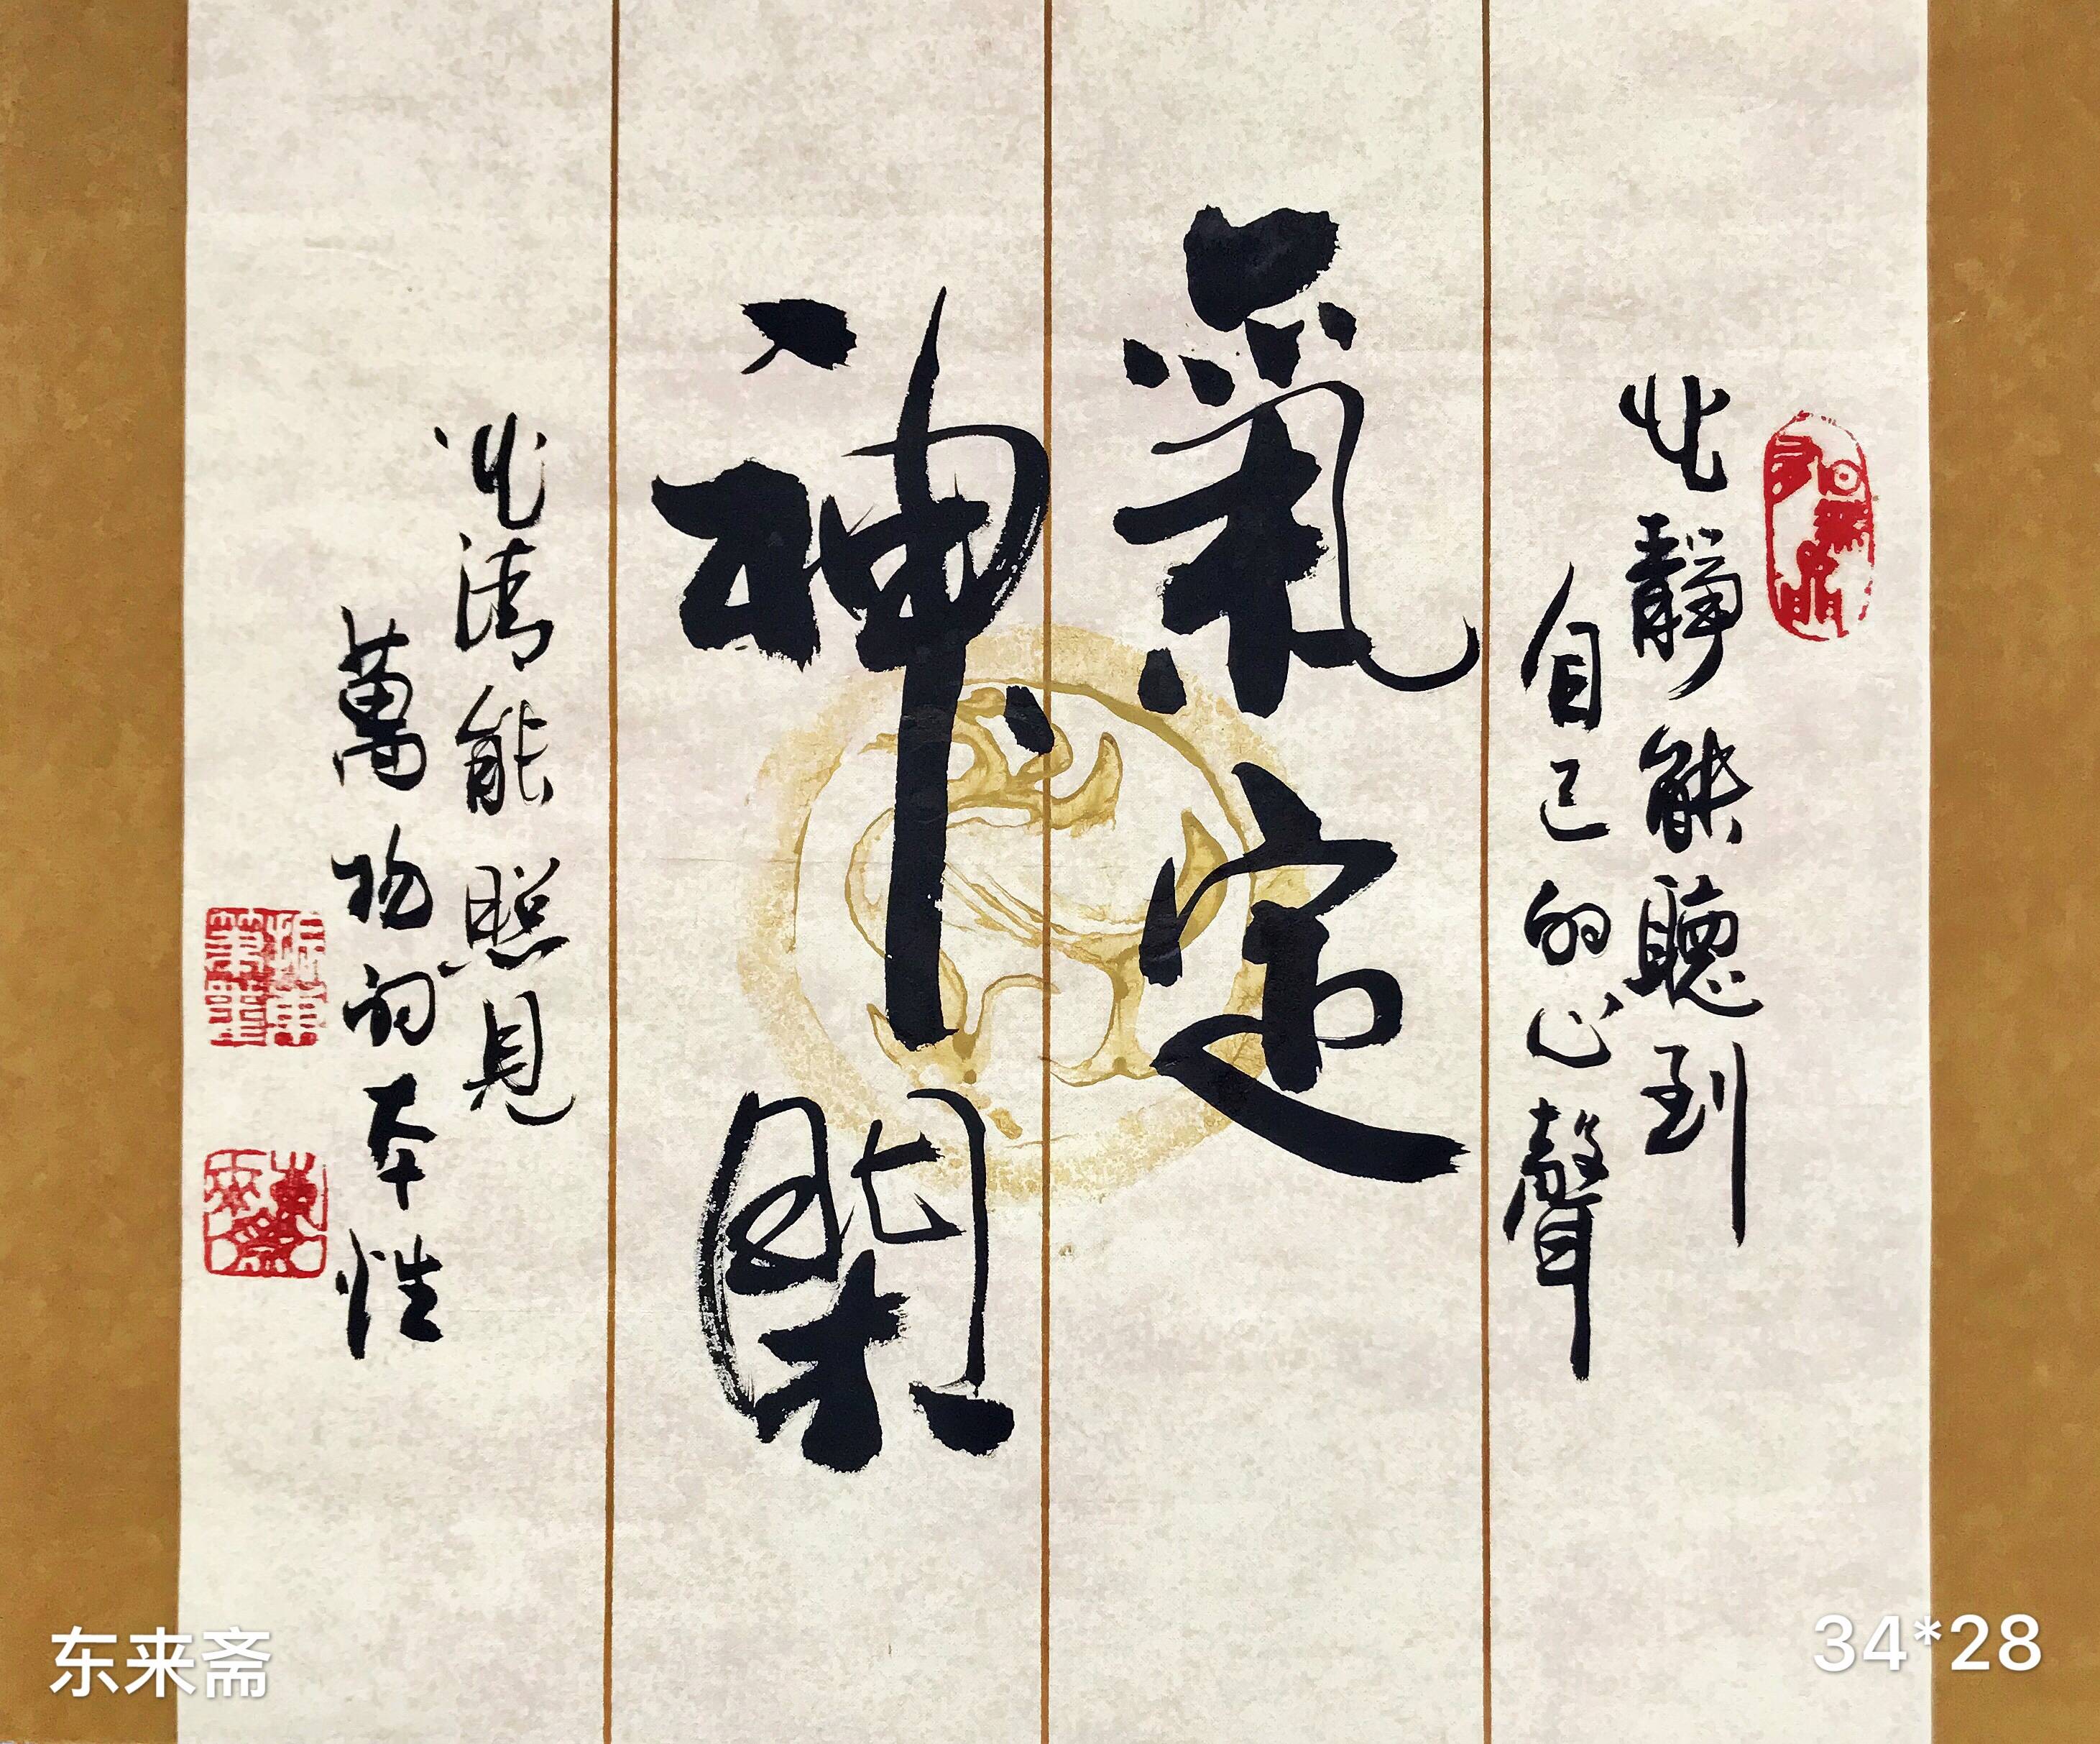 心靜能聽到
自己的心聲
氣定
神閑
心清能照見
萬物的本性
东来斋
34*28